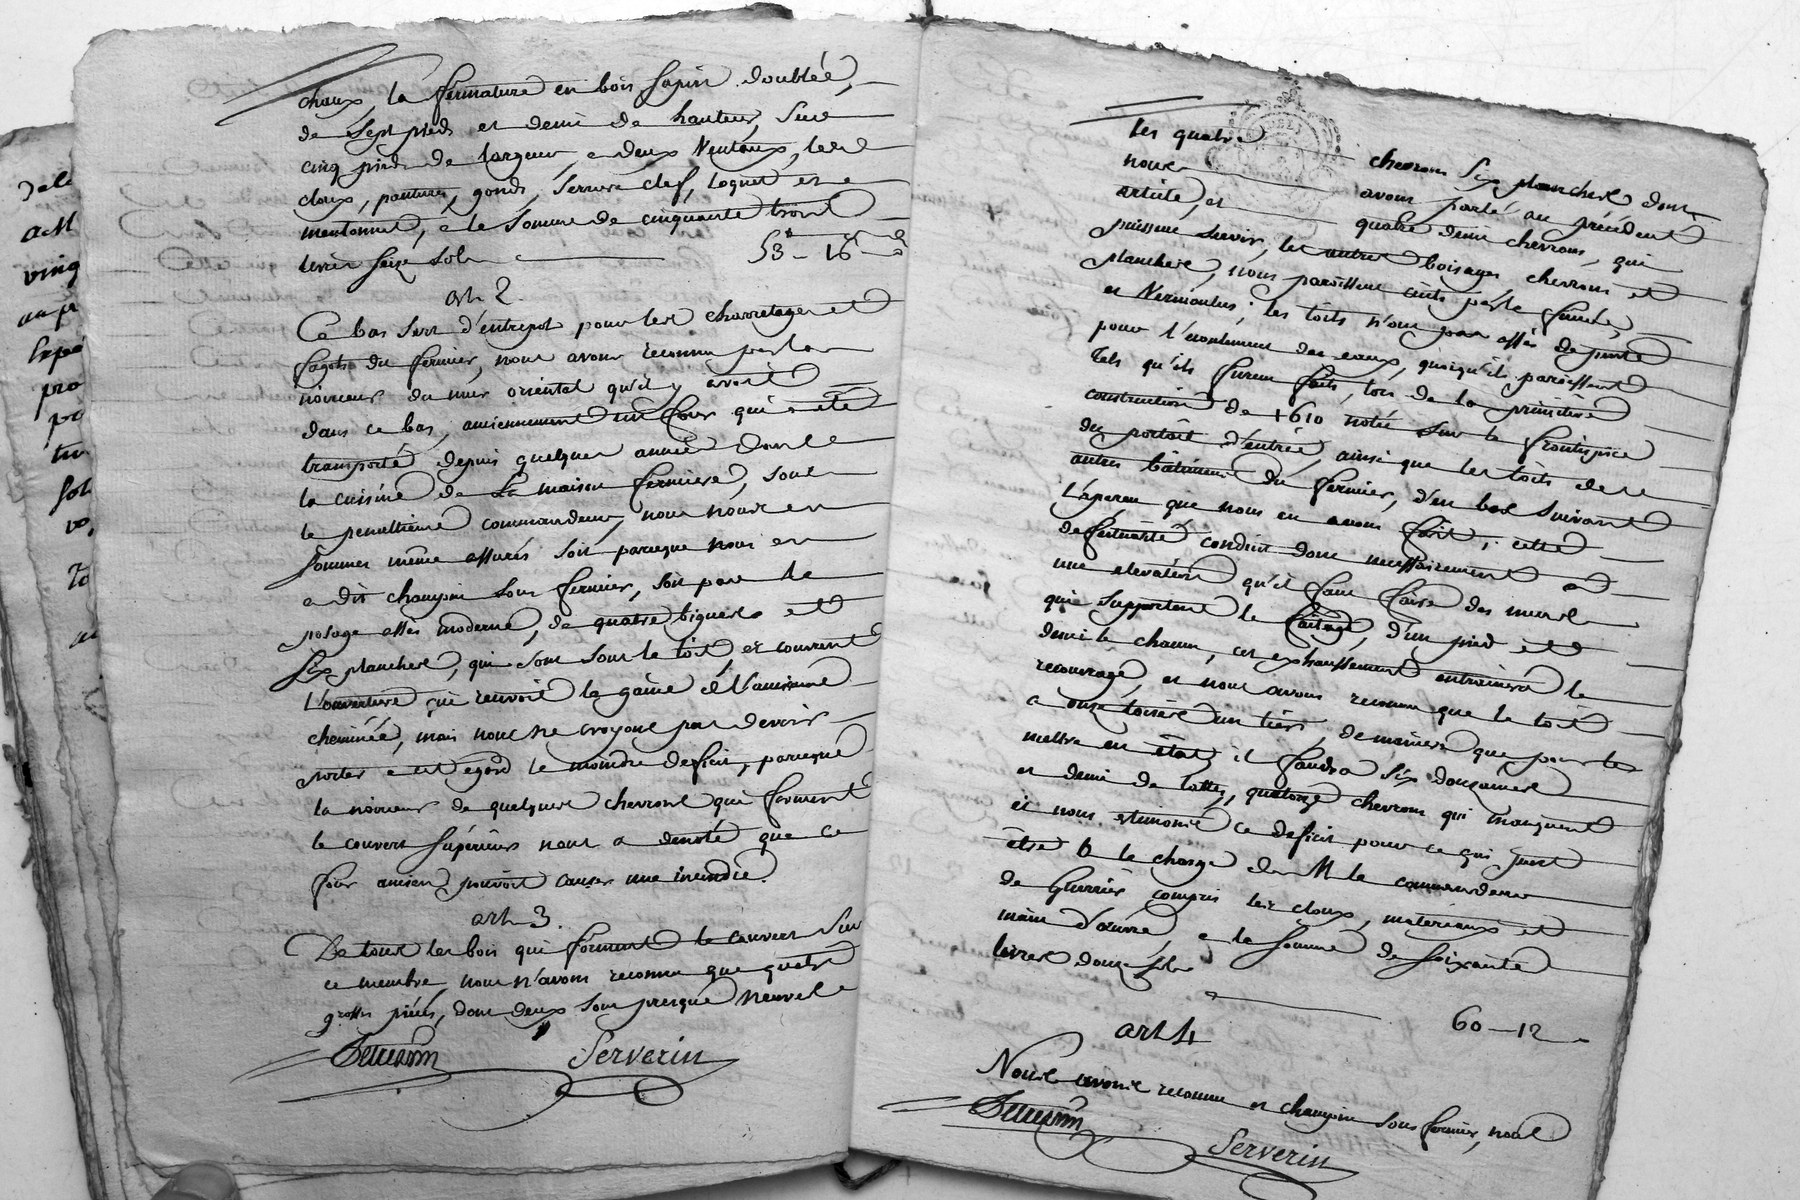 chaux, la fermature en bois sapin doublée,
de sept pieds et demi de hauteur, sur
cinq pieds de largeur, a deux venteaux, les
cloux, pantures, gonds, serrure clef, loquet et
mentonnet, a la somme de cinquante trois
livres seize sols 53# - 16s
art. 2.
Ce bas sert d'entrepot pour les charretages et
fagots du fermier, nous avons reconnu par la
noirceur du mur oriental qu'il y avoit
dans ce bas, anciennement un four qui a eté
transporté depuis quelques années dans
la cuisine de la maison fermiere, sous
le penultieme commandeur, nous nous en
sommes même assurés soit parceque nous en
a dit champin sous fermier, soit par le
posage assés moderne, de quatre tigners et
six planches, qui sont sous le toit et couvrent
l'ouverture qui recevoit la gaine de l'ancienne
cheminée, mais nous ne croyons pas devoir
porter a cet egard le moindre deficit, parceque
la noirceur de quelques chevrons qui forment
le couvert supérieur nous a denoté que ce
four ancien pouvoit causer une incendie.
art. 3.
De tous les bois qui forment le couvert sur
ce membre, nous n'avons reconnu que quatre
grosses pièces, dont deux sont presque neuves
Serverin
les quatre chevrons six planches dont
nous avons parlé au précédent
article, et quatre demi chevrons, qui
puissent servir, les autres boisages chevrons et
planches, nous paroissent cuits par la fumée,
et vermoulus; les toits n'ont pas assés de pente
pour l'ecoulement des eaux, quoiqu'ils paroissent
tels qu'ils furent faits, lors de la primitive
construction de 1610 notée sur le frontispice
du portail d'entrée, ainsi que les toits des
autres bâtiments du fermier, d'en bas suivant
l'aperçu que nous en avons fait, cette
defectuosité conduit donc necessairement a
une elevation qu'il faut faire des murs
qui supportent le faitage, d'un pied et
demi le chacun, cet exhaussement entrainera le
recouvrage, et nous avons reconnu que le toit
a onze toises un tiers, de maniere que pour le
mettre en état il faudra six douzaines
et demi de lattes, quatorze chevrons qui manquent
et nous estimons ce deficit pour ce qui peut
être à la charge de M. le commandeur
de Guerrier compris les cloux, materiaux et
main d'œuvre, a la somme de soixante
livres douze sols
60 - 12
art 4
Nous avons reconnu et champin sous fermier, nous
Serverin